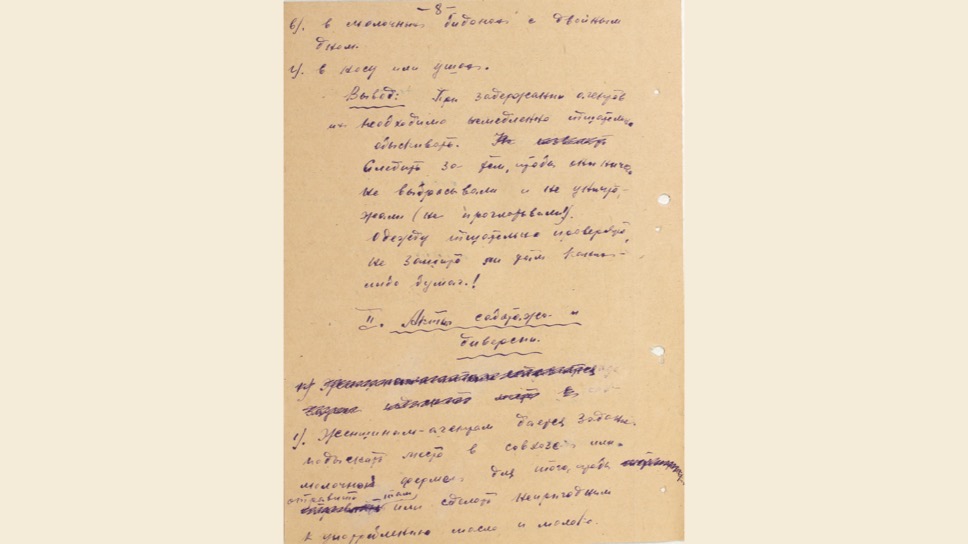 - 8 -
в). в молочных бидонах с двойным
дном.
г). в носу или ушах.
Вывод: При задержании агентов
их необходимо немедленно тщательно
обыскивать.
Следить за тем, чтобы они ниче-
не выбрасывали и не уничто-
жали (не проглатывали!).
Одежду тщательно проверять,
не зашито ли там каких-
либо бумаг.!
II. Акты саботажа и
диверсии.
1). Женщинам-агентам дается задание
подыскать место в совхозе или
молочной ферме, для того, чтобы
отравить там
или сделать непригодным
к употреблению масло и молоко.